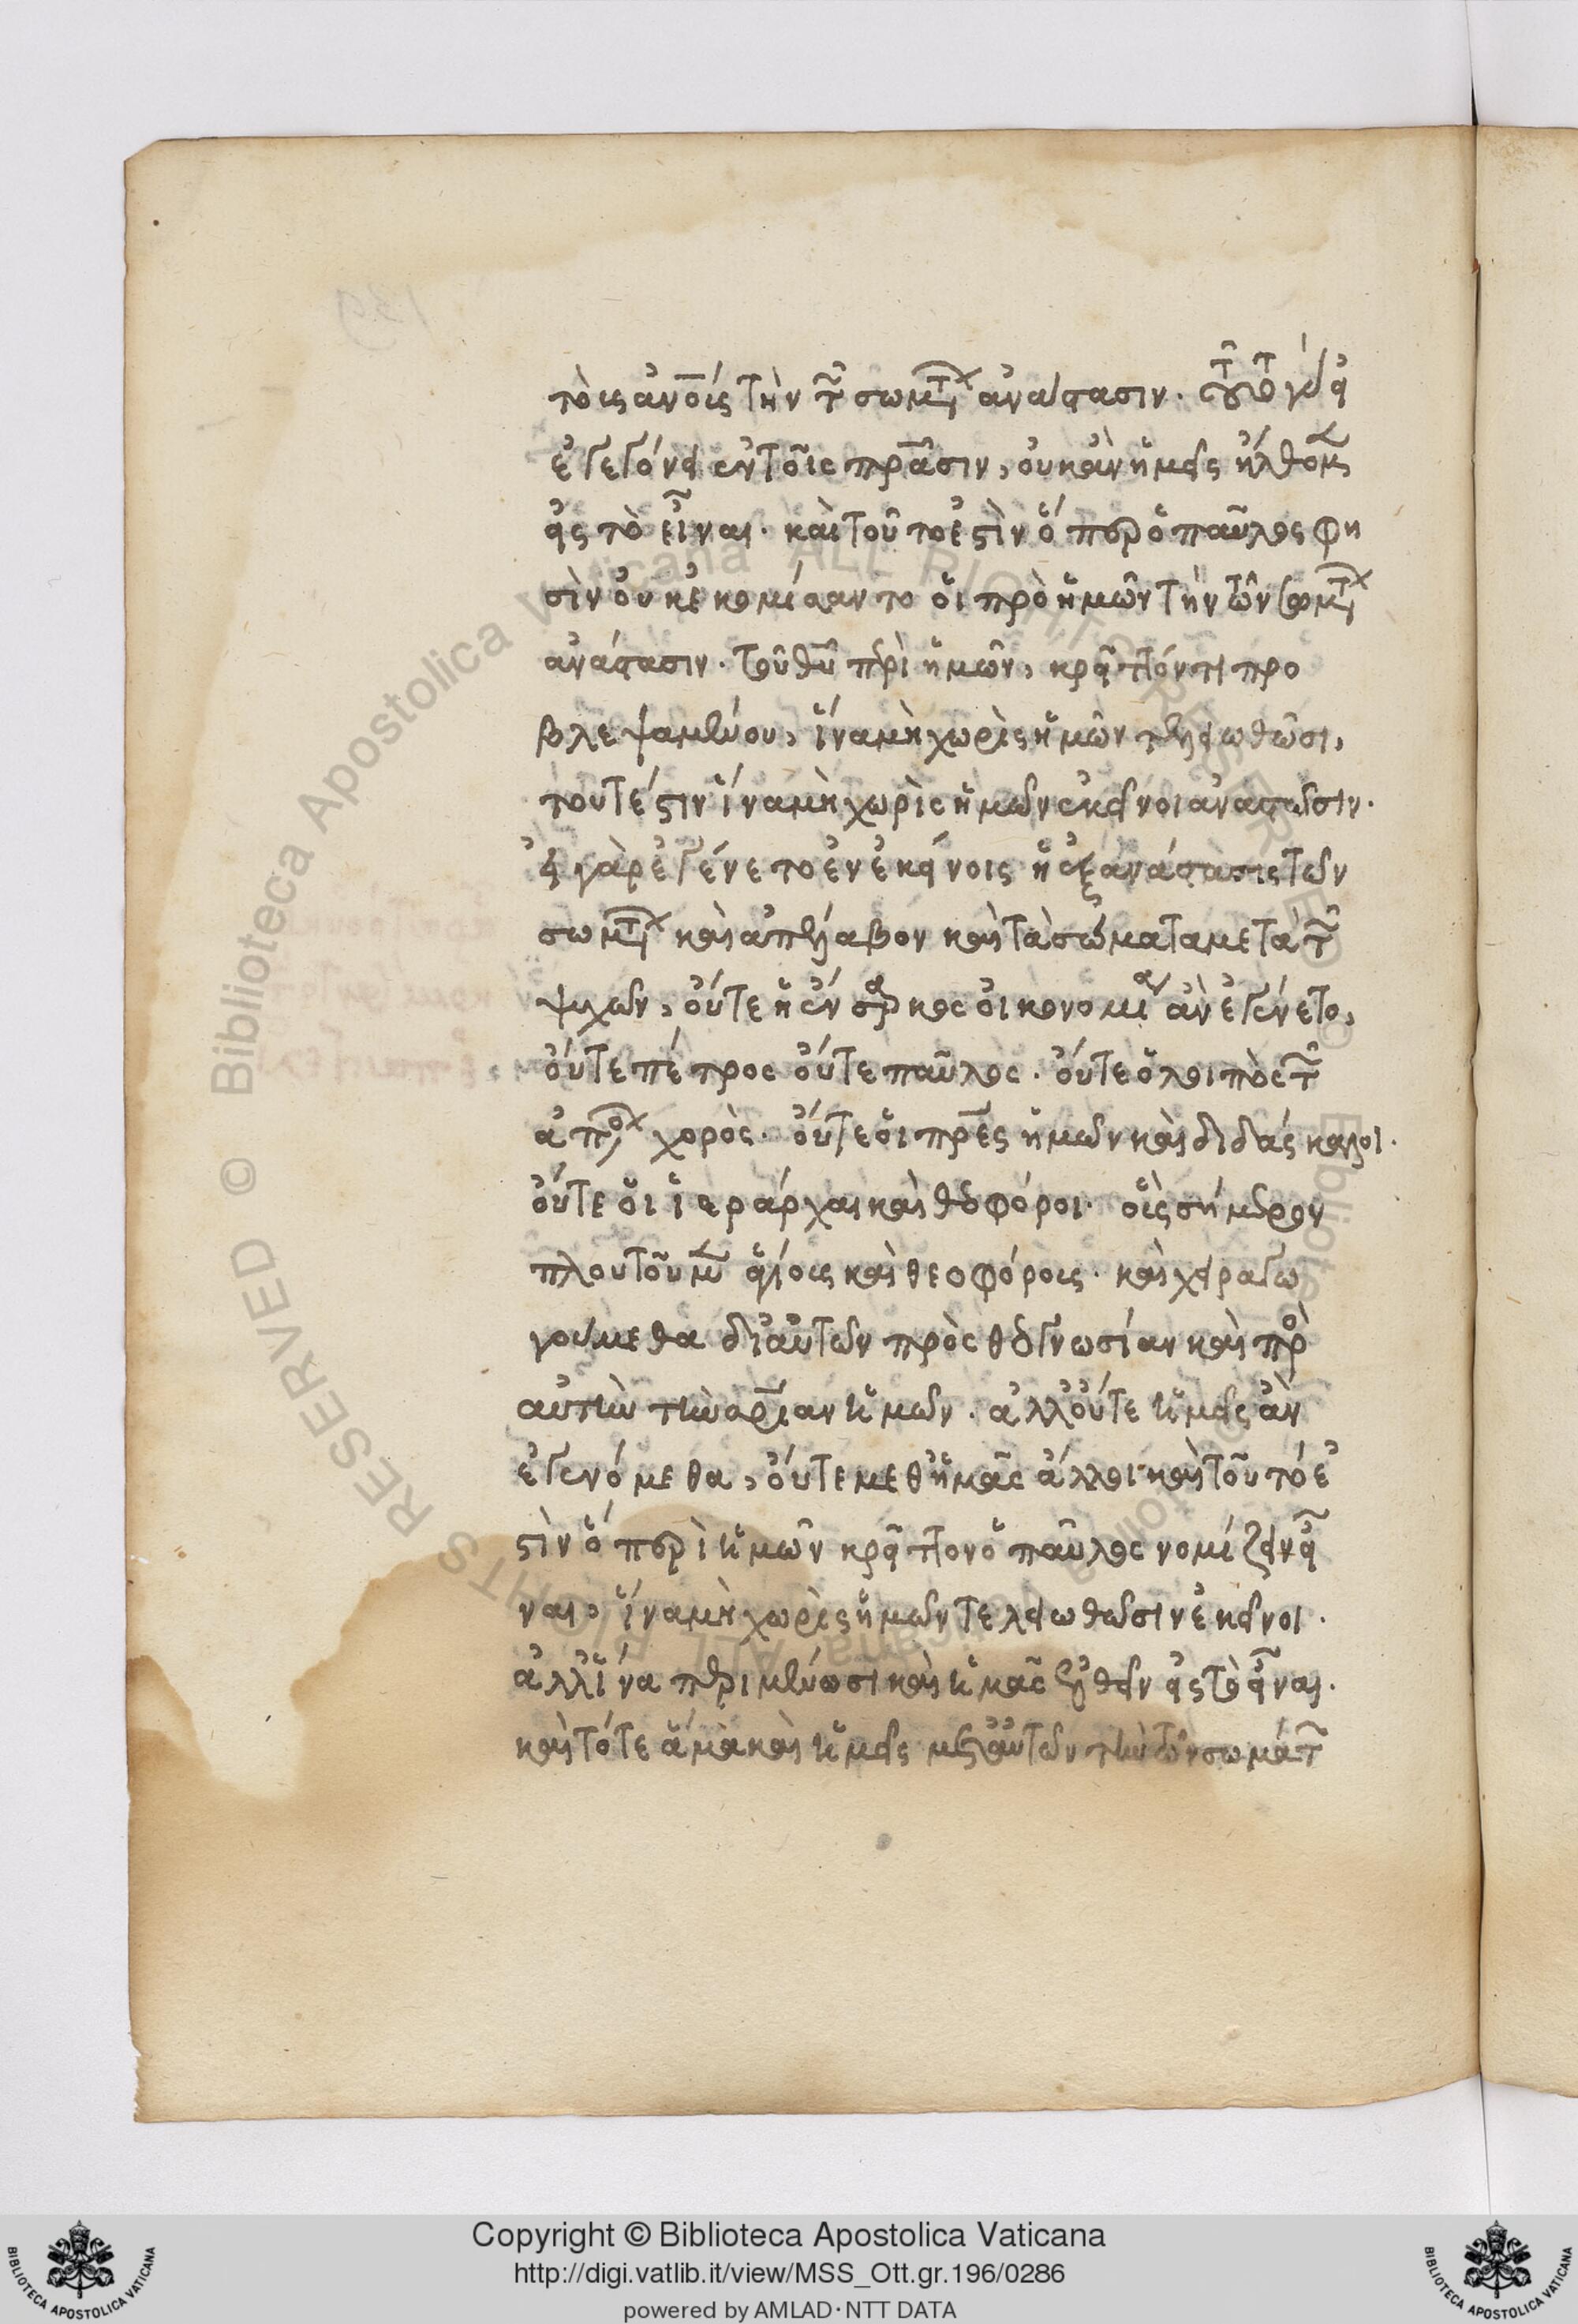 τοὶς ἀν̅οίς τὴν τ̑ σωμτ̑ ἀνάστασιν. τοῦτο γὰρ εἰ
ἐγεγόνει ἐν τοῖς πρ̅άσιν, οὐκ ἀν ἡμεῖς ἤλθομ̅
εἰς τὸ εἶναι. καὶ τοῦτο ἐστὶν ὅπερ ὁ παῦλος φη
σὶν οὐκ ἐκομίσαντο οἱ πρὸ ἡμῶν τὴν τῶν σωμτ̑
ἀνάστασιν. τοῦ θῦ περὶ ἡμῶν, κρεῖττόν τι προ
βλεψαμένου, ἵνα μὴ χωρὶς ἡμῶν τελειωθῶσι,
τουτέστιν ἵνα μὴ χωρὶς ἡμῶν ἐκεῖνοι ἀναστῶσιν.
εἰ γὰρ ἐγένετο ἐν ἐκείνοις ἡ ἐξανάστασις τῶν
σωμτ̑ καὶ ἀπέλαβον καὶ τὰ σώματα μετὰ τ̑
ψυχῶν, οὔτε ἡ ἔνσαρκος οἰκονομία ἀν ἐγένετο,
οὔτε πέτρος οὔτε παῦλος. οὔτε ὁ λοιπὸς τ̑
ἀποϛ χορὸς. οὔτε οἱ πρ̅ες ἡμῶν καὶ διδάσκαλοι.
οὔτε οἱ ἱεράρχαι καὶ θεοφόροι. οἷς σήμερον
πλουτοῦμ̅ ἁγίοις καὶ θεοφόροις. καὶ χειραγω
γούμεθα δι αὐτῶν πρὸς θεογνωσίαν καὶ πρὸ
αὐτὴν τὴν σρ̅ίαν ἡμῶν. ἀλλ οὔτε ἡμεῖς ἀν
ἐγενόμεθα, οὔτε μεθ ἡμᾶς ἄλλοι καὶ τοῦτό ἐ
στὶν ὅ περὶ ἡμῶν κρεῖττον ὁ παῦλος νομίζειν εἶ
ναι, ἵνα μὴ χωρὶς ἡμῶν τελειωθῶσιν ἐκεῖνοι.
ἀλλ ἵνα περιμένωσι καὶ ἡμᾶς ἐλθεῖν εἰς τὸ εἶναι.
καὶ τότε ἅμα καὶ ἡμεῖς μετ αὐτῶν τὴν τῶν σωμάτ̑
Copyright © Biblioteca Apostolica Vaticana
http://digi.vatlib.it/view/MSS_Ott.gr.196/0286
powered by AMLAD · NTT DATA